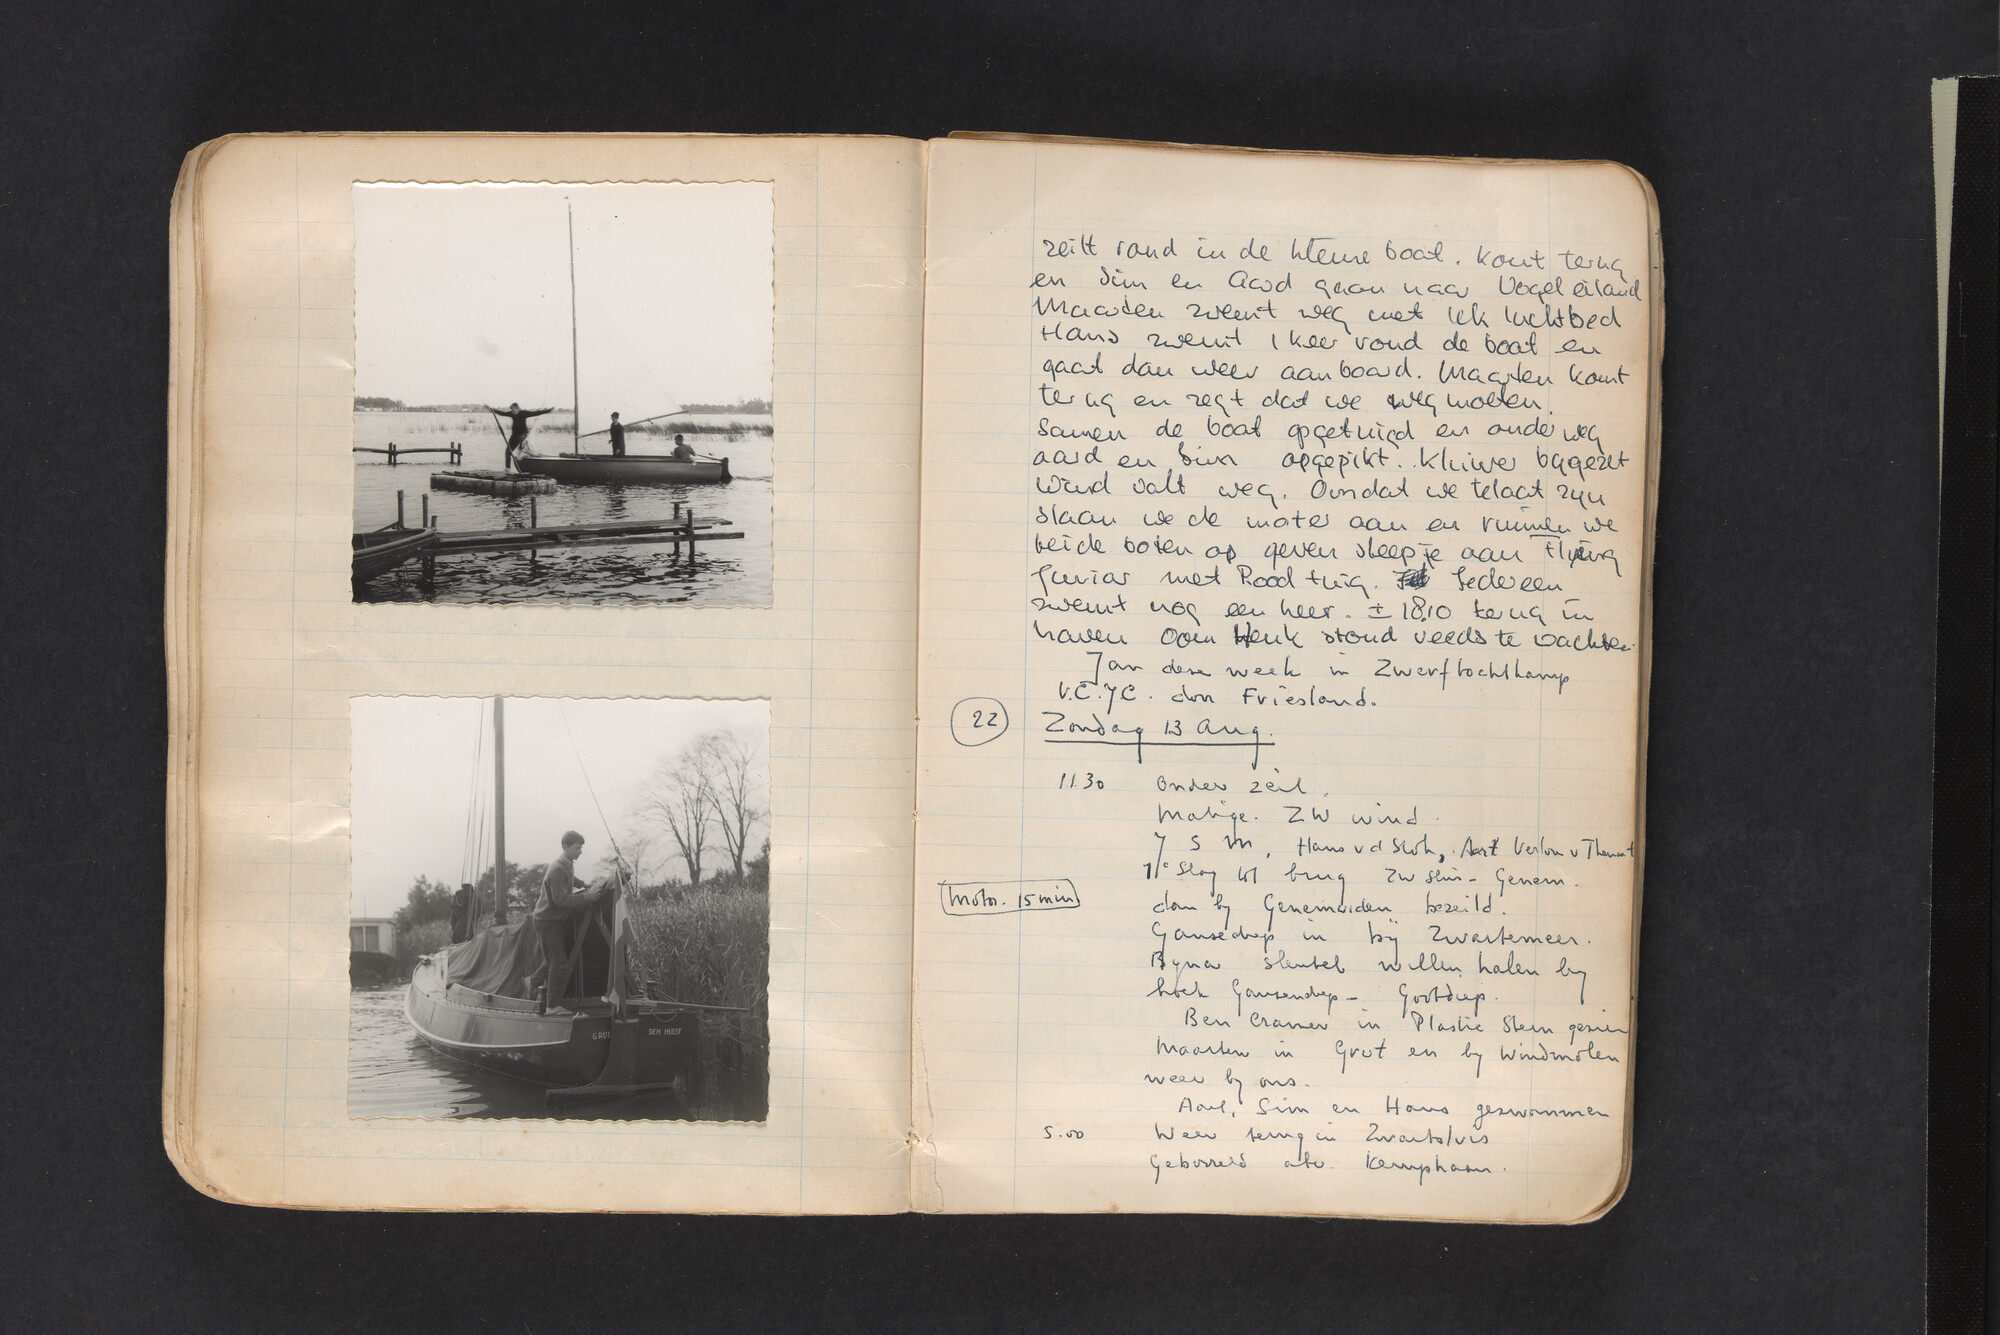 GRUT
DEN HULST
zeilt rond in de kleine boot. komt terug
en Sim en Aard gaan naar Vogeleiland
Maarten zwemt weg met lek luchtbed
Hans zwemt 1 keer rond de boot en
gaat dan weer aan boord. Maarten komt
terug en zegt dat we weg moeten.
Samen de boot opgetuigd en onderweg
aard en Sim opgepikt. Kluiver bygezet
Wind valt weg. Omdat we te laat zyn
slaan we de motor aan en ruimen we
beide boten op geven sleepje aan Flying
Junior met Rood tuig. Iedereen
zwemt nog een keer. ± 18.10 terug in
haven Oom Henk stond reeds te wachten
Jan deze week in Zwerftochtkamp
V.C.J.C. door Friesland.
22
Zondag 13 Aug.
11.30 Onder zeil.
Matige ZW wind.
J S M, Hans v d Stok, Aart Verlon v Themaat
1e Slag tot brug Zw Sluis - Genem.
Motor. 15 min
dan by Genemuiden bezeild.
Gansediep in bij Zwartemeer.
Byna sleutel willen halen by
hoek Ganzendiep - Gootdiep.
Ben Cramer in Plastic Stern gezien
Maarten in Grut en by Windmolen
weer by ons.
Aart, Sim en Hans gezwommen
5.00 Weer terug in Zwartsluis
Geborreld a/b. Kemphaan.